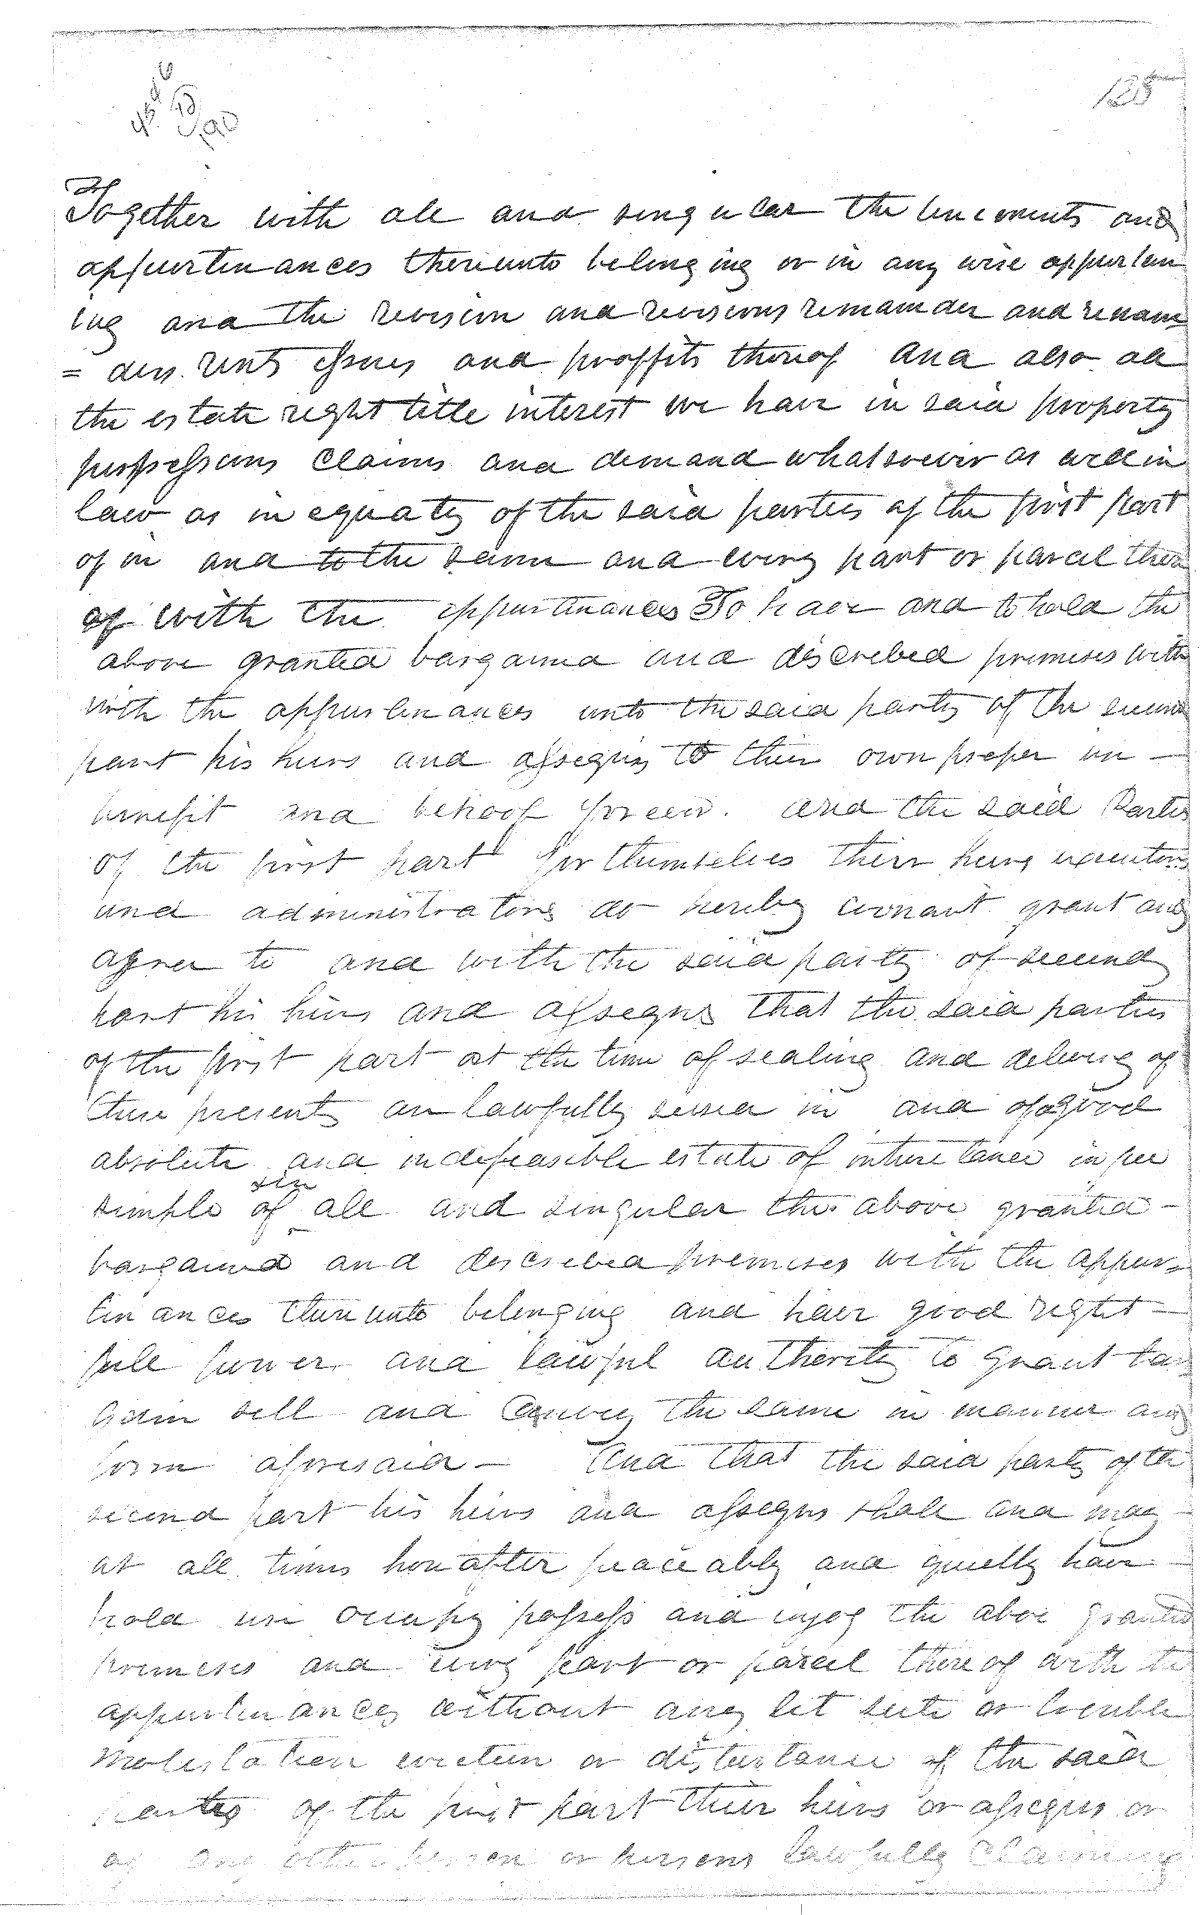 125
Together with all and singular the tenements and
appurtinances thereunto belonging or in any wise appurten
ing and the revision and revisions remainder and remain
= ders. rents issues and proffits thereof And also all
the estate right title interest we have in said property
possessions claims and demand whatsoever as well in
law as in equaty of the said parties of the first part
of in and to the same and every part or parcel there
of with the appurtinances To have and to hold the
above granted bargained and discrebed premises with
with the appurtinances unto the said party of the second
part his heirs and assegns to their own proper use
benefit and behoof forever. And the said Parties
of the first part for themselves their heirs executors
and administrators do hereby covnant grant and
agree to and with the said party of second
part his heirs and assegns that the said parties
of the first part at the time of sealing and delivery of
these presents are lawfully seised in and of a good
absolute and indefeasible estate of inheritance in fee
simple of all and singular the above granted
bargained and descrebed premises with the appur=
tinances thereunto belonging and have good right
full power and lawful authority to grant bar
gain sell and Convey the same in manner and
form aforesaid — And that the said party of the
second part his heirs and assegns shall and may
at all times hereafter peaceably and quietly have
hold use occupy possess and enjoy the above granted
premises and every part or parcel thereof with the
appurtinances without any let sute or trouble
molestation eviction or disturbance of the said
parties of the first part their heirs or assegns or
of any other person or persons lawfully claiming